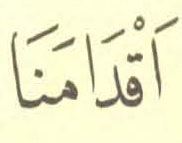 اَقْدَامَنَا